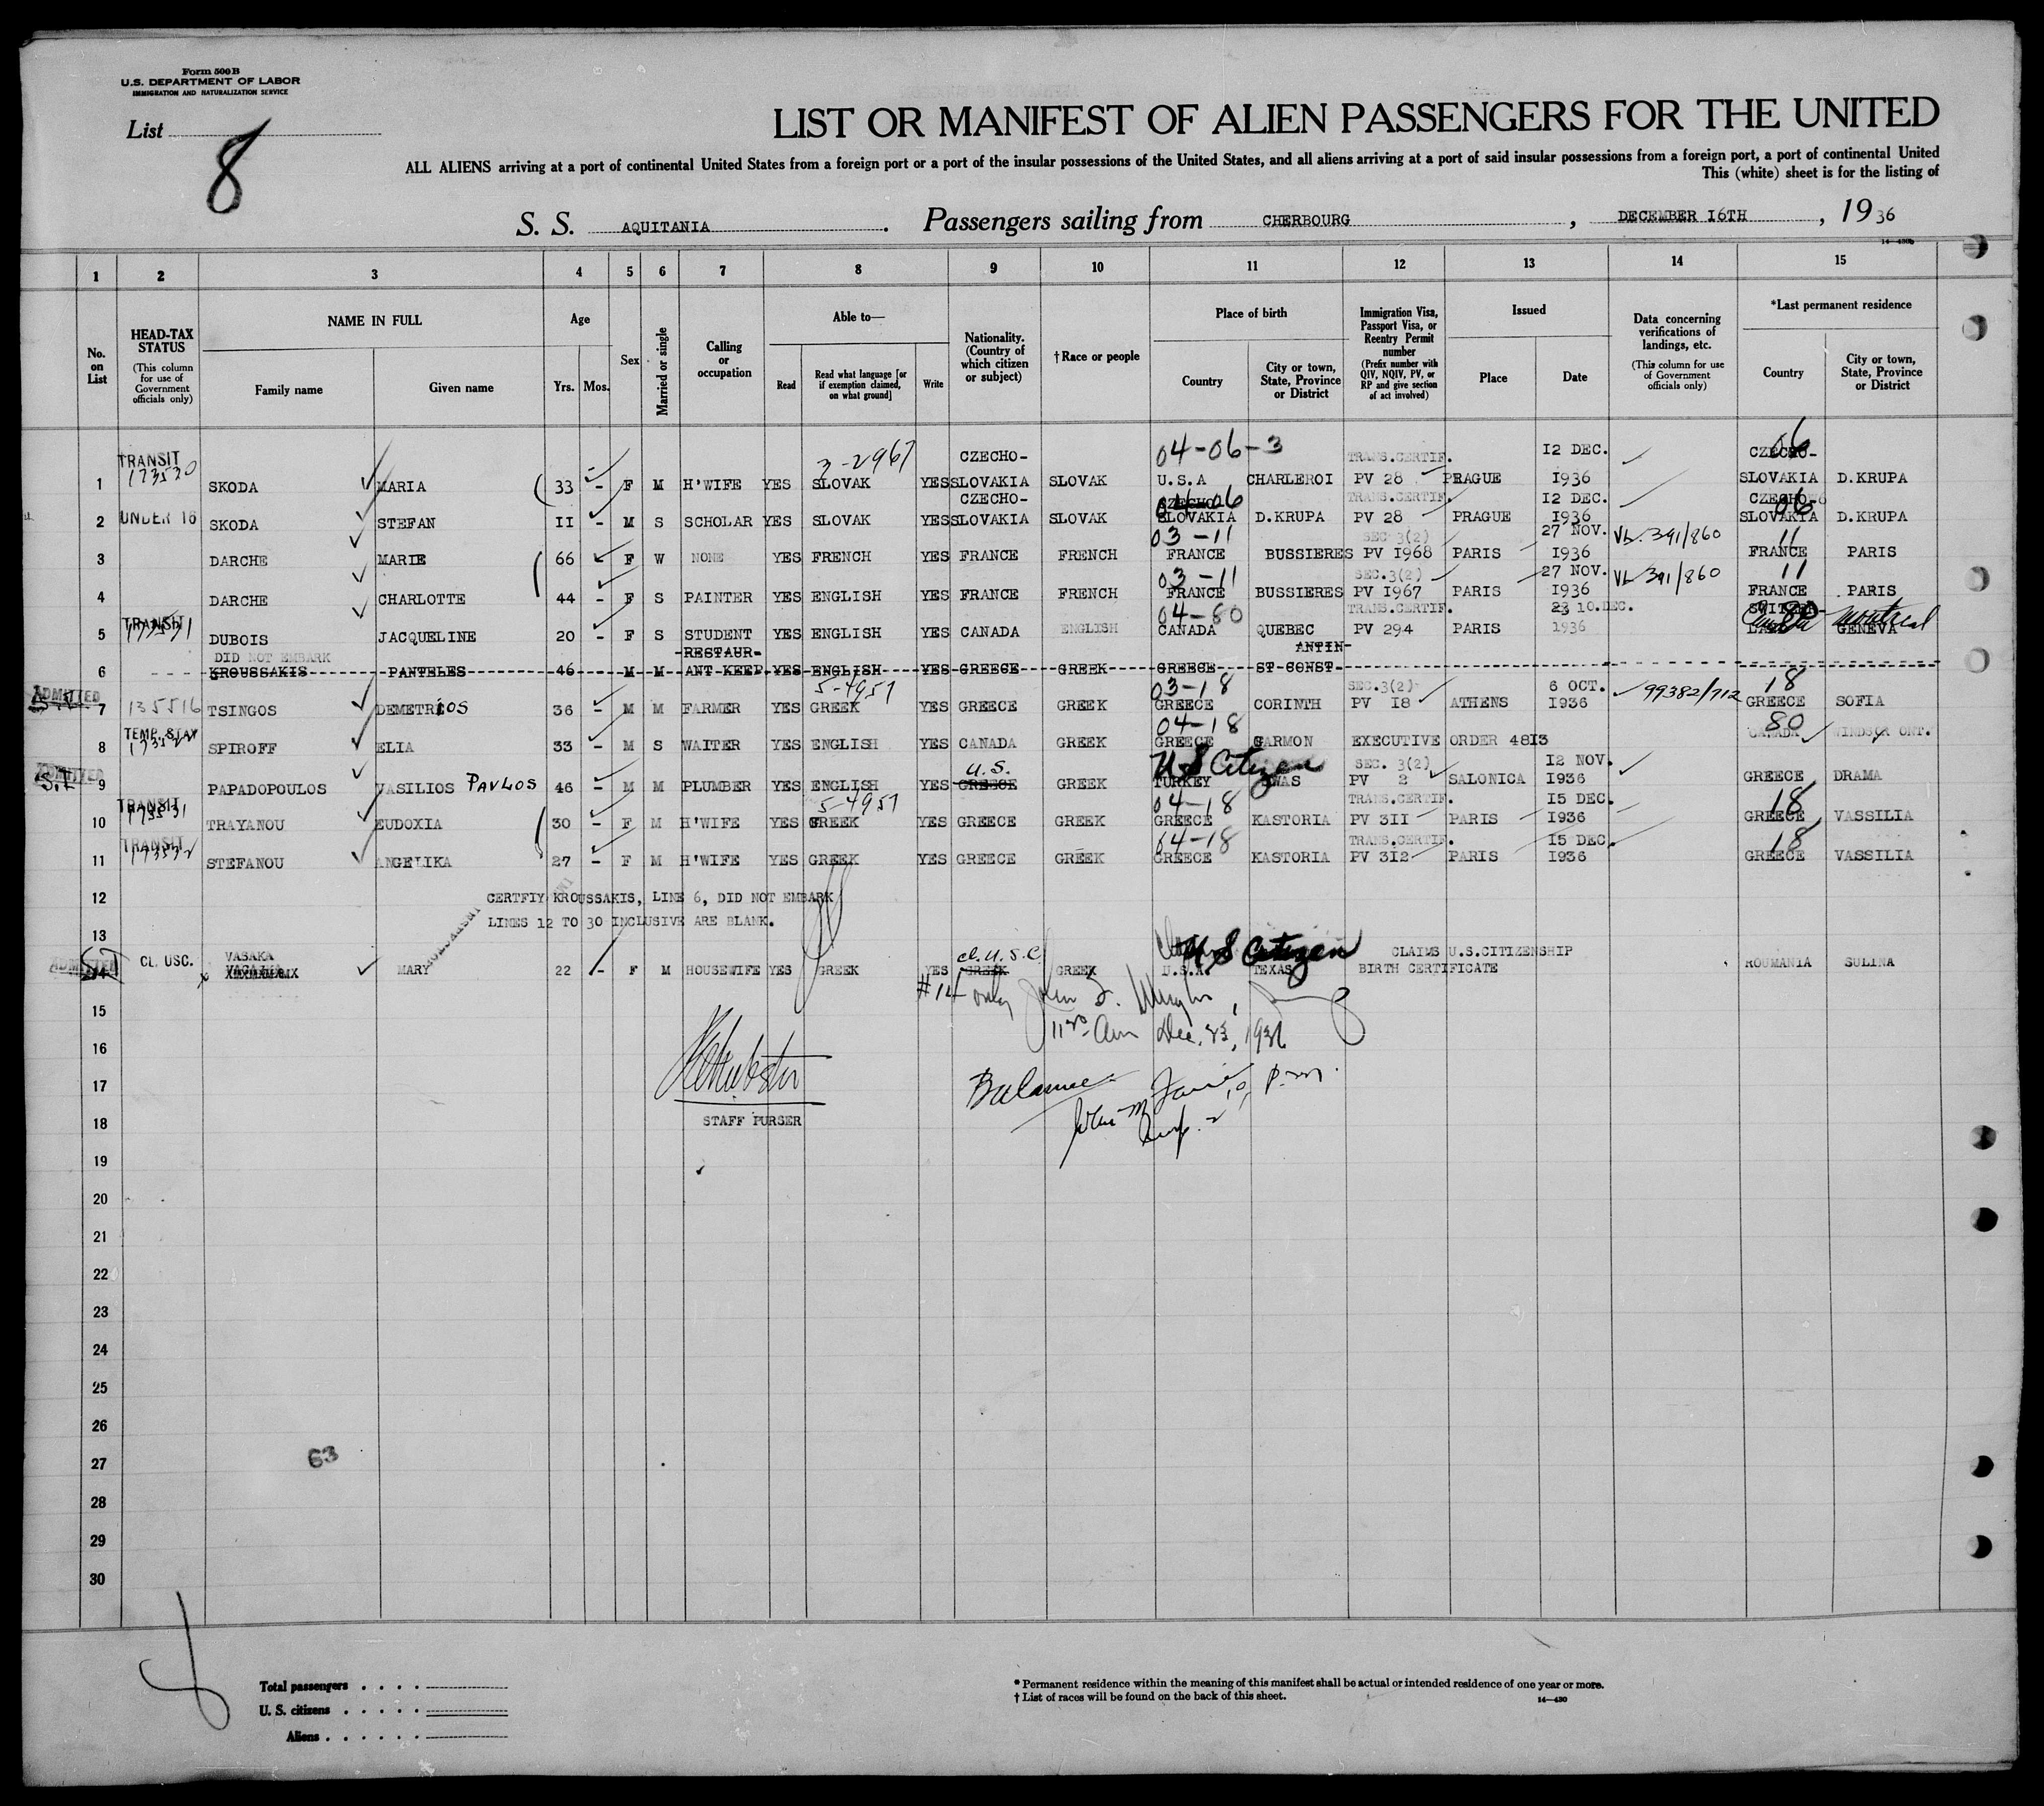 Form 500 B
U.S. DEPARTMENT OF LABOR
IMMIGRATION AND NATURALIZATION SERVICE
List
8
LIST OR MANIFEST OF ALIEN PASSENGERS FOR THE UNITED
ALL ALIENS arriving at a port of continental United States from a foreign port or a port of the insular possessions of the United States, and all aliens arriving at a port of said insular possessions from a foreign port, a port of continental United
This (white) sheet is for the listing of
S. S. AQUITANIA. Passengers sailing from CHERBOURG, DECEMBER 16TH, 1936
1 2 3 4 5 6 7 8 9 10 11 12 13 14 15
No. on List
HEAD-TAX STATUS (This column for use of Government officials only)
NAME IN FULL Family name Given name
Age Yrs. Mos.
Sex
Married or single
Calling or occupation
Able to— Read Read what language [or if exemption claimed, on what ground] Write
Nationality. (Country of which citizen or subject)
†Race or people
Place of birth Country City or town, State, Province or District
Immigration Visa, Passport Visa, or Reentry Permit number (Prefix number with QIV, NQIV, PV, or RP and give section of act involved)
Issued Place Date
Data concerning verifications of landings, etc. (This column for use of Government officials only)
*Last permanent residence Country City or town, State, Province or District
TRANSIT 173530 3-2967 CZECHO- 04-06-3 TRANS.CERTIF. 12 DEC. 06 CZECHO-
1 SKODA MARIA 33 - F M H'WIFE YES SLOVAK YES SLOVAKIA SLOVAK U.S.A CHARLEROI PV 28 PRAGUE 1936 SLOVAKIA D.KRUPA
CZECHO- CZECHO 04-06 TRANS.CERTIF. 12 DEC. CZECHO- 06
2 UNDER 16 SKODA STEFAN 11 - M S SCHOLAR YES SLOVAK YES SLOVAKIA SLOVAK SLOVAKIA D.KRUPA PV 28 PRAGUE 1936 SLOVAKIA D.KRUPA
03-11 SEC 3(2) 27 NOV. VL. 391/860 11
3 DARCHE MARIE 66 F W NONE YES FRENCH YES FRANCE FRENCH FRANCE BUSSIERES PV 1968 PARIS 1936 FRANCE PARIS
03-11 SEC.3(2) 27 NOV. VL 391/860 11
4 DARCHE CHARLOTTE 44 - F S PAINTER YES ENGLISH YES FRANCE FRENCH FRANCE BUSSIERES PV 1967 PARIS 1936 FRANCE PARIS
TRANSIT 04-80 TRANS.CERTIF. 10.DEC. Montreal
5 DUBOIS JACQUELINE 20 - F S STUDENT YES ENGLISH YES CANADA ENGLISH CANADA QUEBEC PV 294 PARIS 1936 GENEVA
DID NOT EMBARK RESTAUR- ANTIN-
6 KROUSSAKIS PANTELES 46 M M ANT KEEP YES ENGLISH YES GREECE GREEK GREECE ST CONST
ADMITTED 5-4957 03-18 SEC.3(2) 6 OCT. 99382/712 18
7 135516 TSINGOS DEMETRIOS 36 - M M FARMER YES GREEK YES GREECE GREEK GREECE CORINTH PV 18 ATHENS 1936 GREECE SOFIA
TEMP. STAY 04-18 80
8 SPIROFF ELIA 33 - M S WAITER YES ENGLISH YES CANADA GREEK GREECE GARMON EXECUTIVE ORDER 4813 CANADA WINDSOR ONT.
ADMITTED S.I U.S. U S Citizen SEC. 3(2) 12 NOV.
9 PAPADOPOULOS VASILIOS PAVLOS 46 - M M PLUMBER YES ENGLISH YES GREECE GREEK TURKEY PV 2 SALONICA 1936 GREECE DRAMA
TRANSIT 173531 5-4957 04-18 TRANS.CERTIF. 15 DEC. 18
10 TRAYANOU EUDOXIA 30 - F M H'WIFE YES GREEK YES GREECE GREEK GREECE KASTORIA PV 311 PARIS 1936 GREECE VASSILIA
TRANSIT 173532 04-18 TRANS.CERTIF. 15 DEC. 18
11 STEFANOU ANGELIKA 27 - F M H'WIFE YES GREEK YES GREECE GREEK GREECE KASTORIA PV 312 PARIS 1936 GREECE VASSILIA
12 CERTFIY KROUSSAKIS, LINE 6, DID NOT EMBARK
LINES 12 TO 30 INCLUSIVE ARE BLANK.
13
ADMITTED CL. USC. VASAKA cl. U.S.C. U S Citizen CLAIMS U.S.CITIZENSHIP
14 MARY 22 - F M HOUSEWIFE YES GREEK YES GREEK GREEK U.S.A. TEXAS BIRTH CERTIFICATE ROUMANIA SULINA
#14 only John
15
Dec. 23, 1936
16
17 Balance
18 STAFF PURSER
19
20
21
22
23
24
25
26
27 63
28
29
30
Total passengers
U. S. citizens
Aliens
* Permanent residence within the meaning of this manifest shall be actual or intended residence of one year or more.
† List of races will be found on the back of this sheet.
14—430